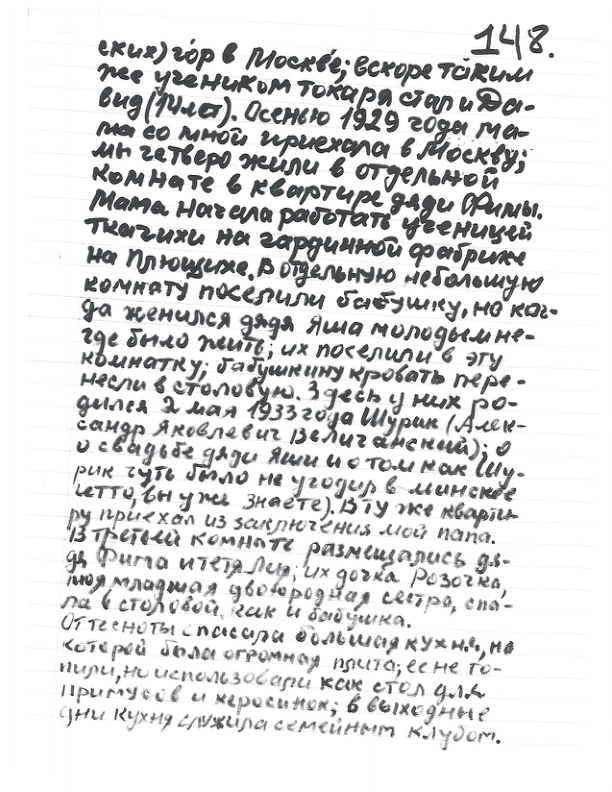 148.
ских) го́р в Москве; вскоре таким
же учеником токаря стал и Да-
вид (14 лет). Осенью 1929 года ма-
ма со мной приехала в Москву;
мы четверо жили в отдельной
комнате в квартире дяди Фимы.
Мама начала работать ученицей
ткачихи на гардинной фабрике
на Плющихе. В отдельную небольшую
комнату поселили бабушку, но ког-
да женился дядя Яша молодым не-
где было жить; их поселили в эту
комнатку; бабушкину кровать пере-
несли в столовую. Здесь у них ро-
дился 2 мая 1933 года Шурик (Алек-
сандр Яковлевич Величанский); о
о свадьбе дяди Яши и о том как Шу-
рик чуть было не угодил в минское
гетто, вы уже знаете). В ту же кварти-
ру приехал из заключения мой папа.
В третьей комнате размещались дя-
дя Фима и тётя Лия; их дочка Розочка,
моя младшая двоюродная сестра, спа-
ла в столовой, как и бабушка.
От тесноты спасала большая кухня, на
которой была огромная плита; ее не то-
пили, но использовали как стол для
примусов и керосинок; в выходные
дни кухня служила семейным клубом.